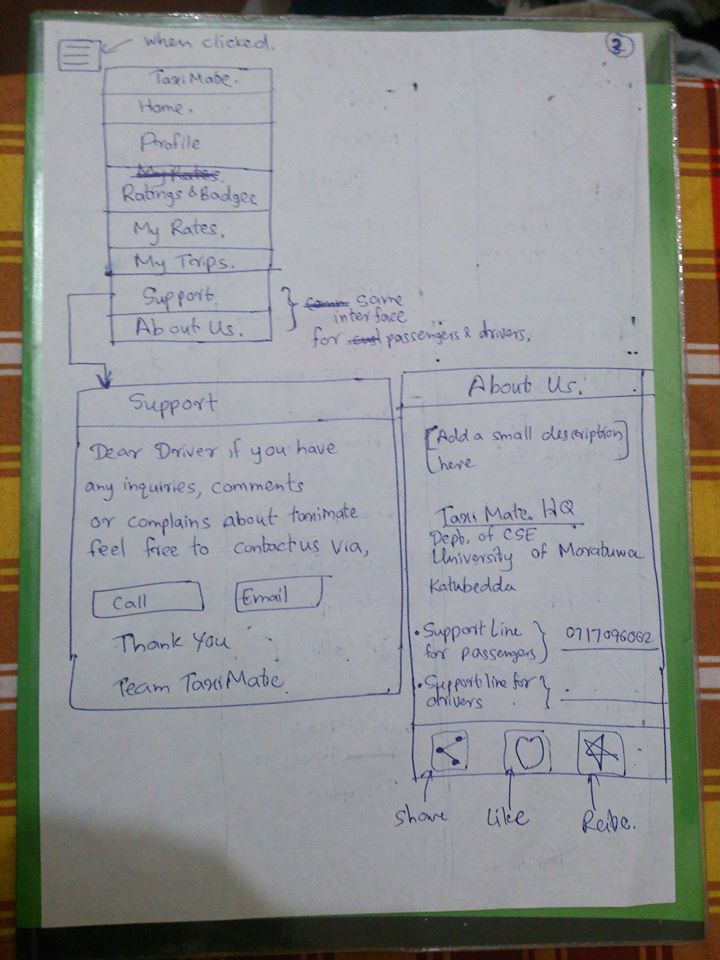 when clicked.
2
Taxi Mate.
Home.
Profile
My Rates.
Ratings & Badges
My Rates.
My Trips.
Support.
About Us.
same
interface
for passengers & drivers.
Support
Dear Driver if you have
any inquiries, comments
or complains about taximate
feel free to contact us via,
Call
Email
Thank You
Team TaxiMate.
About Us.
[Add a small description]
here
Taxi Mate HQ
Dept. of CSE
University of Moratuwa
Katubedda
• Support Line
for passengers } 0717096062
• Support line for
drivers }
Share
Like
Rate.